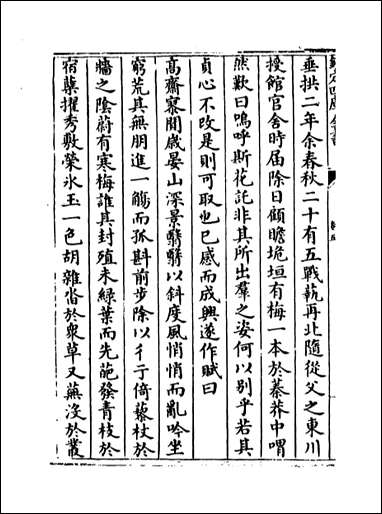 垂拱二年余春秋二十有五戰蓺再北隨從父之東川
授館官舍時届除日顧瞻圮垣有梅一本於蓁莽中喟
然歎曰嗚呼斯花託非其所出羣之姿何以别乎若其
貞心不改是則可取也已感而成興遂作賦曰
高齋寥閴歲晏山深景翳翳以斜度風悄悄而亂吟坐
窮荒其無朋進一觴而孤斟前步除以彳亍倚藜杖於
牆之陰蔚有寒梅誰其封殖未緑葉而先葩發青枝於
宿蘖擢秀敷榮氷玉一色胡雜沓於衆草又蕪沒於叢